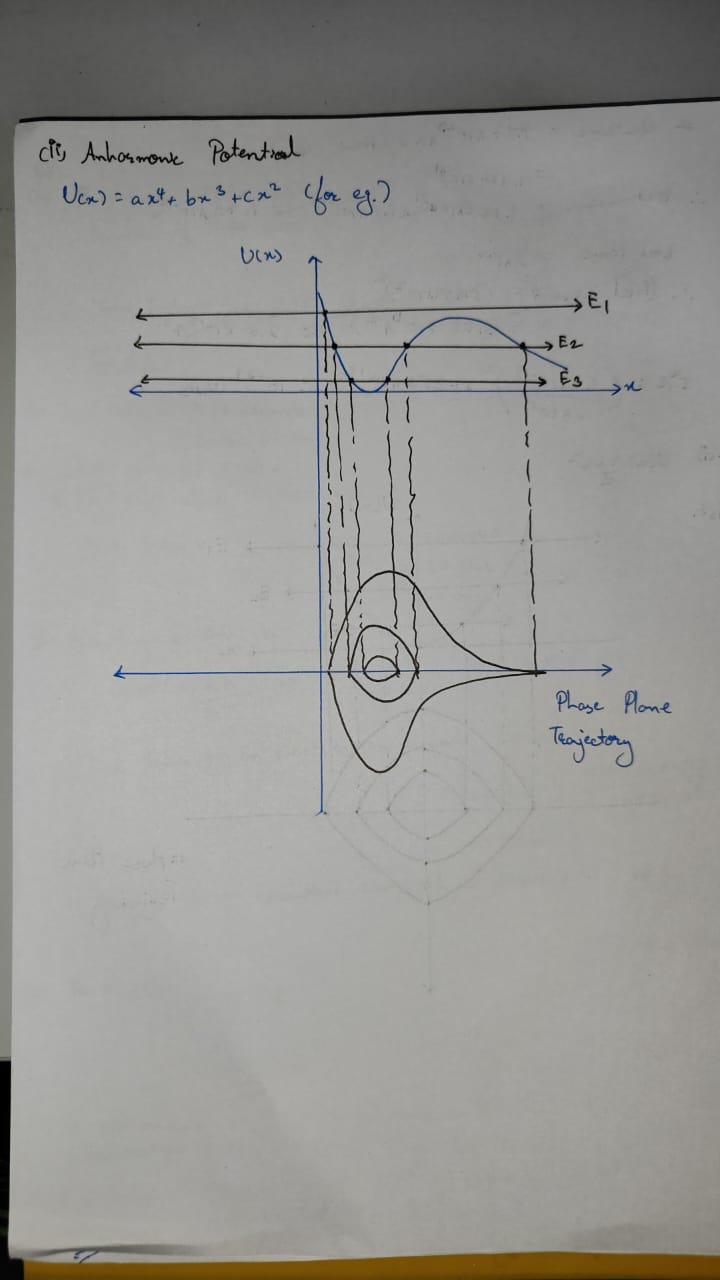 (ii) Anharmonic Potential
U(x) = ax⁴ + bx³ + cx² (for eg.)
U(x)
E₁
E₂
E₃
x
Phase Plane
Trajectory